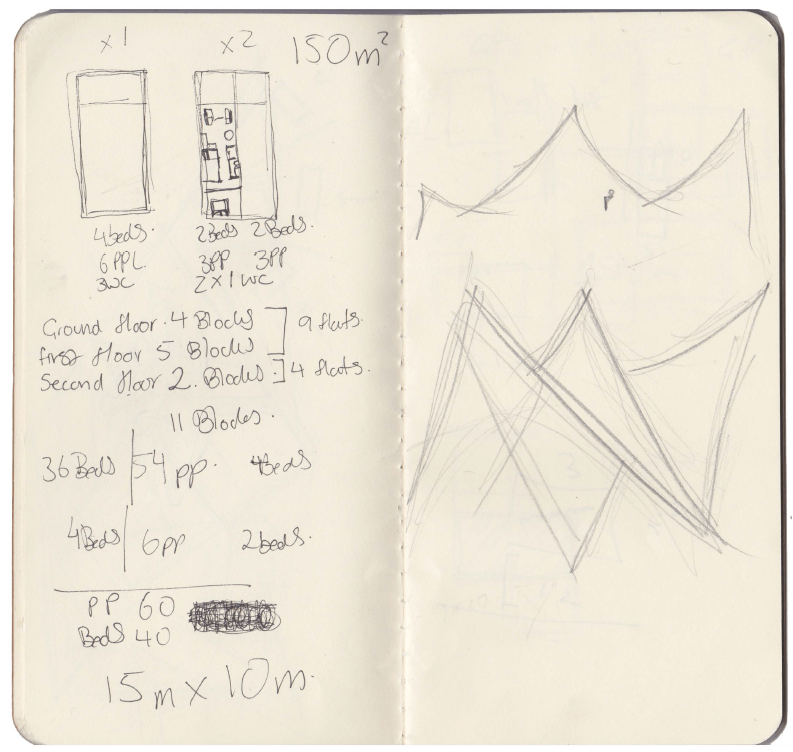 x1 x2 150m²
4beds. 2Beds 2Beds.
6PPL 3PP 3PP
3WC 2x1WC
Ground floor. 4 Blocks ] 9 flats.
first floor 5 Blocks
Second floor 2. Blocks. ] 4 flats.
11 Blocks.
36 Beds | 54 pp. 4Beds
4Beds | 6pp 2beds.
PP 60
Beds 40
15m x 10m.
P